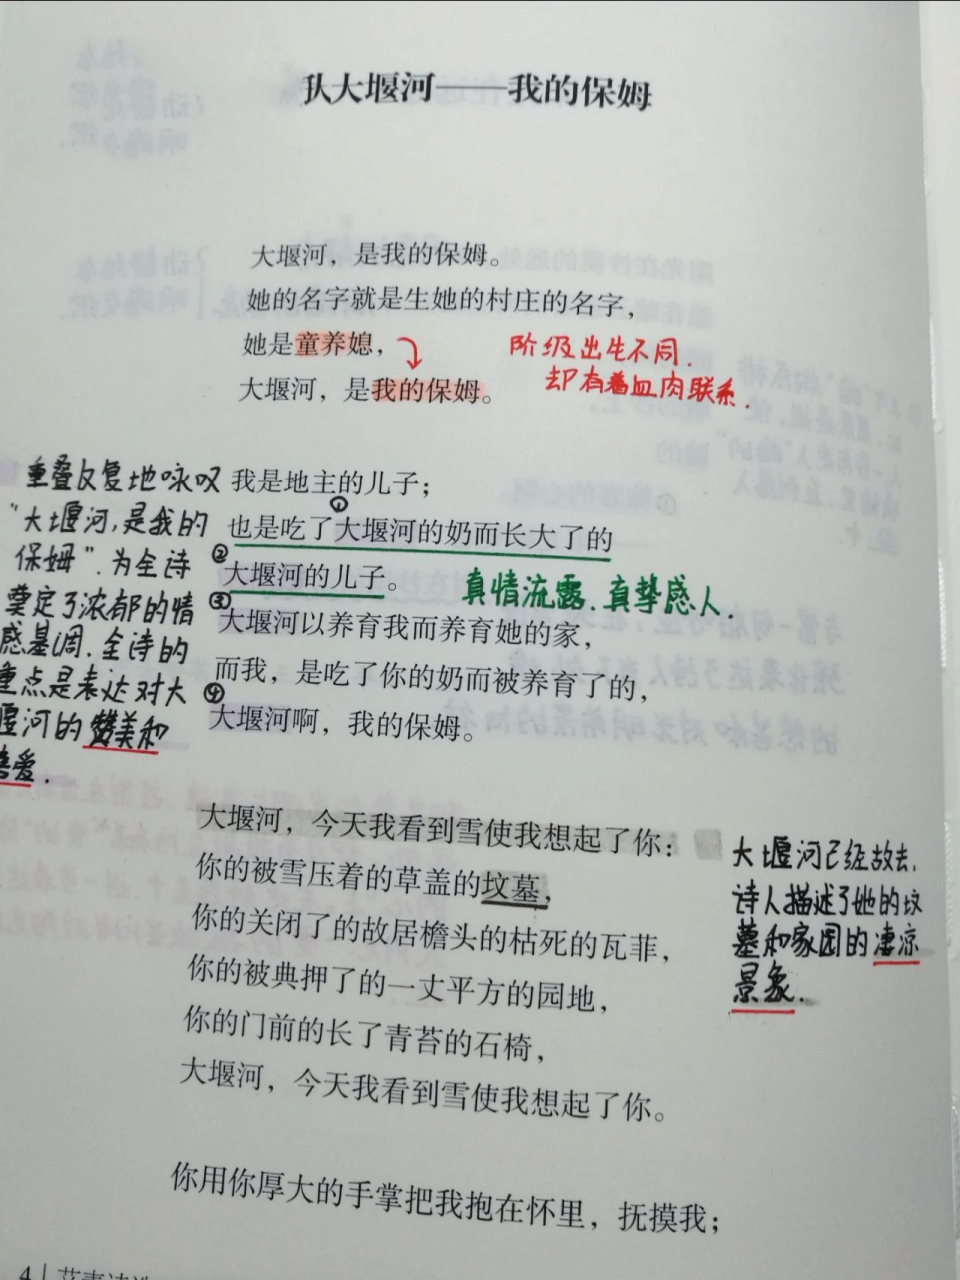 大堰河——我的保姆
大堰河，是我的保姆。
她的名字就是生她的村庄的名字，
她是童养媳，
大堰河，是我的保姆。
阶级出生不同.
却有着血肉联系.
我是地主的儿子；
①
也是吃了大堰河的奶而长大了的
②
大堰河的儿子。
③
大堰河以养育我而养育她的家，
而我，是吃了你的奶而被养育了的，
④
大堰河啊，我的保姆。
真情流露.真挚感人.
重叠反复地咏叹
“大堰河,是我的
保姆”.为全诗
奠定了浓郁的情
感基调.全诗的
重点是表达对大
堰河的赞美和
爱.
大堰河，今天我看到雪使我想起了你：
你的被雪压着的草盖的坟墓，
你的关闭了的故居檐头的枯死的瓦菲，
你的被典押了的一丈平方的园地，
你的门前的长了青苔的石椅，
大堰河，今天我看到雪使我想起了你。
大堰河已经故去,
诗人描述了她的坟
墓和家园的凄凉
景象.
你用你厚大的手掌把我抱在怀里，抚摸我；
4 | 艾青诗选